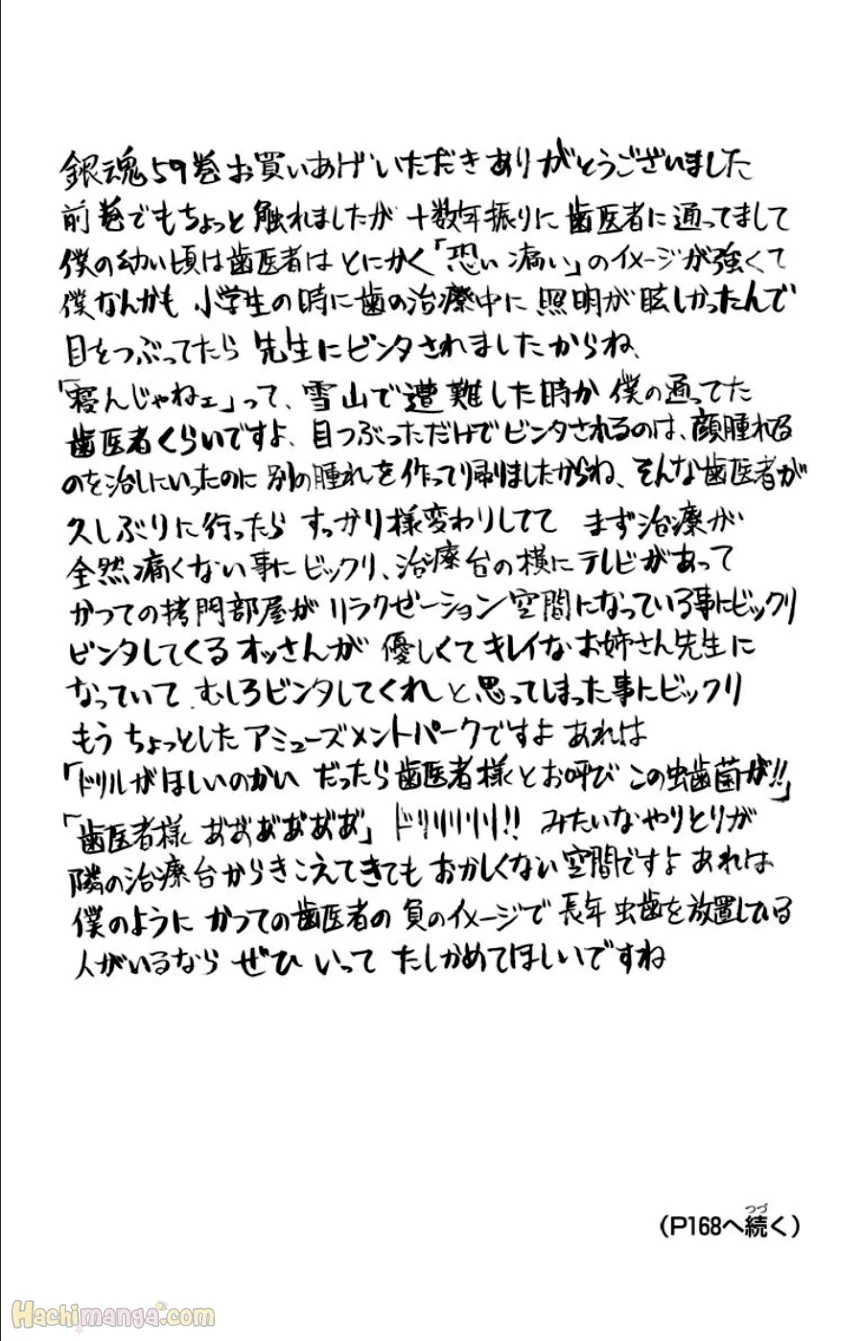 銀魂59巻お買いあげいただきありがとうございました
前巻でもちょっと触れましたが 十数年振りに歯医者に通ってまして
僕の幼い頃は歯医者はとにかく「恐い 痛い」のイメージが強くて
僕なんかも 小学生の時に歯の治療中に 照明が眩しかったんで
目をつぶってたら 先生にビンタされましたからね、
「寝んじゃねェ」って、雪山で遭難した時か 僕の通ってた
歯医者くらいですよ、目つぶっただけでビンタされるのは、顔腫れる
のを治しにいったのに 別の腫れを作って帰りましたからね、そんな歯医者が
久しぶりに行ったら すっかり様変わりしてて まず治療が
全然痛くない事にビックリ、治療台の横にテレビがあって
かつての拷問部屋が リラクゼーション空間になっている事にビックリ
ビンタしてくるオッさんが 優しくてキレイなお姉さん先生に
なっていて むしろビンタしてくれ と思ってしまった事にビックリ
もう ちょっとしたアミューズメントパークですよ あれは
「ドリルがほしいのかい だったら歯医者様とお呼び この虫歯菌が!!」
「歯医者様 あ゛あ゛あ゛あ゛あ゛あ゛」ドリリリリリ!! みたいなやりとりが
隣の治療台からきこえてきても おかしくない空間ですよ あれは
僕のように かつての歯医者の負のイメージで 長年虫歯を放置している
人がいるなら ぜひ いって たしかめてほしいですね
つづ
(P168へ続く)
Hachimanga.com